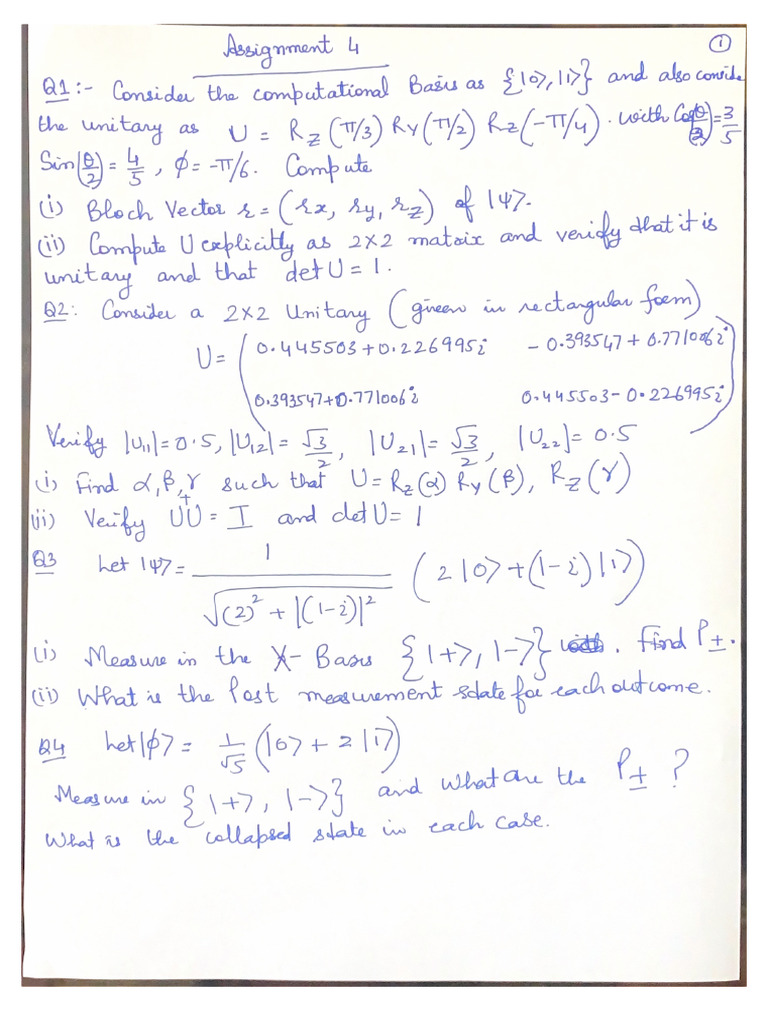 Assignment 4
1
Q1:- Consider the computational Basis as {|0⟩, |1⟩} and also conside
the unitary as U = R_Z(π/3) R_Y(π/2) R_Z(-π/4). with Cos(θ/2) = 3/5
Sin(θ/2) = 4/5, ϕ = -π/6. Compute
(i) Bloch Vector r = (rx, ry, rz) of |ψ⟩.
(ii) Compute U explicitly as 2×2 matrix and verify that it is
unitary and that det U = 1.
Q2: Consider a 2×2 Unitary (given in rectangular form)
U = ( 0.445503 + 0.226995i   - 0.393547 + 0.771006i
0.393547 + 0.771006i   0.445503 - 0.226995i )
Verify |U11| = 0.5, |U12| = √3/2, |U21| = √3/2, |U22| = 0.5
(i) Find α, β, γ such that U = R_Z(α) R_Y(β), R_Z(γ)
(ii) Verify U†U = I and det U = 1
Q3 Let |ψ⟩ = 1/√((2)² + |(1-i)|²) (2|0⟩ + (1-i)|1⟩)
(i) Measure in the X-Basis {|+⟩, |-⟩}. Find P±.
(ii) What is the Post measurement state for each outcome.
Q4 Let |ϕ⟩ = 1/√5 (|0⟩ + 2|1⟩)
Measure in {|+⟩, |-⟩} and what are the P± ?
What is the collapsed state in each case.